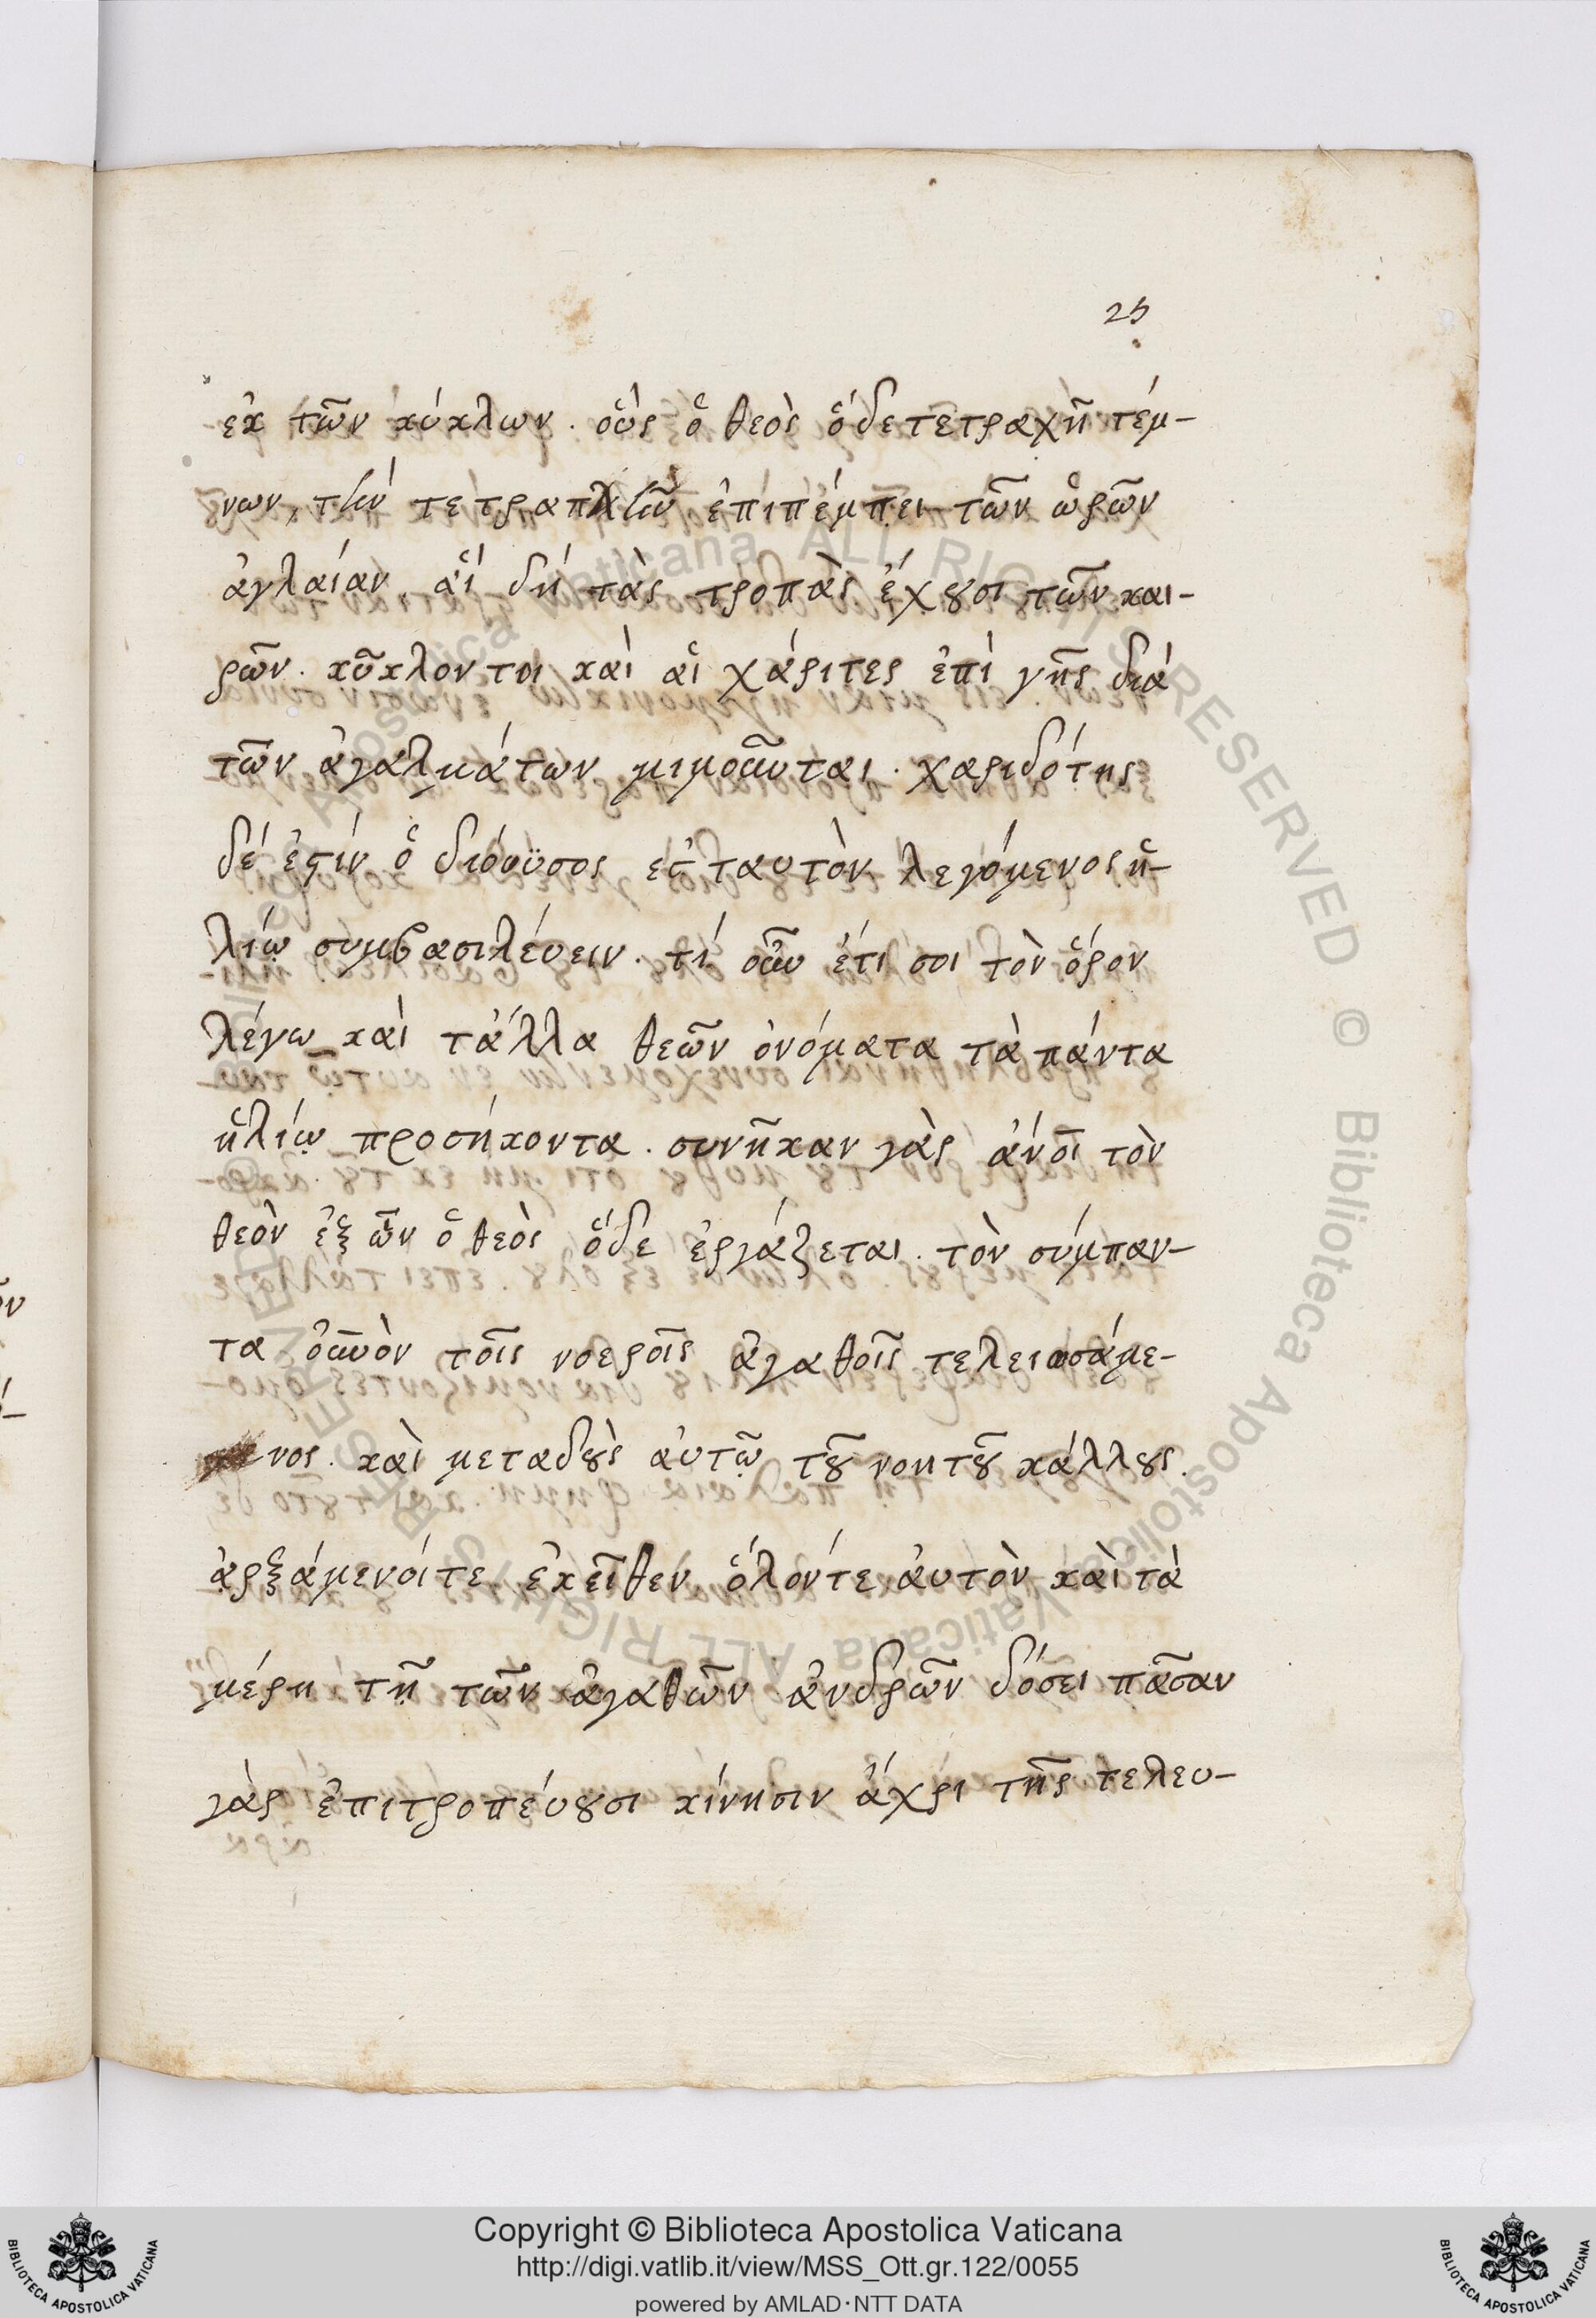 25
ἐκ τῶν κύκλων. οὓς ὁ θεὸς ὅδε τετραχῆ τέμ-
νων, τὴν τετραπλῆν ἐπιπέμπει τῶν ὡρῶν
ἀγλαίαν, αἵ δή τὰς τροπὰς ἔχȣσι τῶν και-
ρῶν. κῦκλον τοι καὶ αἱ χάριτες ἐπὶ γῆς διά
τῶν ἀγαλμάτων μιμοῦνται. χαριδότης
δέ ἐϛιν ὁ διόνϋσος ἐς ταυτὸν λεγόμενος ἡ-
λίῳ συμβασιλέυειν. τί οὖν ἔτι σοι τὸν ὅρον
λέγω καὶ τἄλλα θεῶν ὀνόματα τὰ πάντα
ἡλίῳ προσήκοντα. συνῆκαν γὰρ ἄνοι τὸν
θεὸν ἐξ ὧν ὁ θεὸς ὅδε ἐργάζεται. τὸν σύμπαν-
τα οὐνὸν τοῖς νοεροῖς ἀγαθοῖς τελειωσάμε-
νος. καὶ μεταδȣ̀ς ἀυτῷ τȣ͂ νοητȣ͂ κάλλȣς.
ἀρξάμενοί τε ἐκεῖθεν ὅλόντε ἀυτὸν καὶ τὰ
μέρη τῇ τῶν ἀγαθῶν ἀνδρῶν δόσει πᾶσαν
γὰρ ἐπιτροπέυȣσι κίνησιν ἄχρι τῆς τελευ-
Copyright © Biblioteca Apostolica Vaticana
http://digi.vatlib.it/view/MSS_Ott.gr.122/0055
powered by AMLAD·NTT DATA
BIBLIOTECA APOSTOLICA VATICANA
BIBLIOTECA APOSTOLICA VATICANA